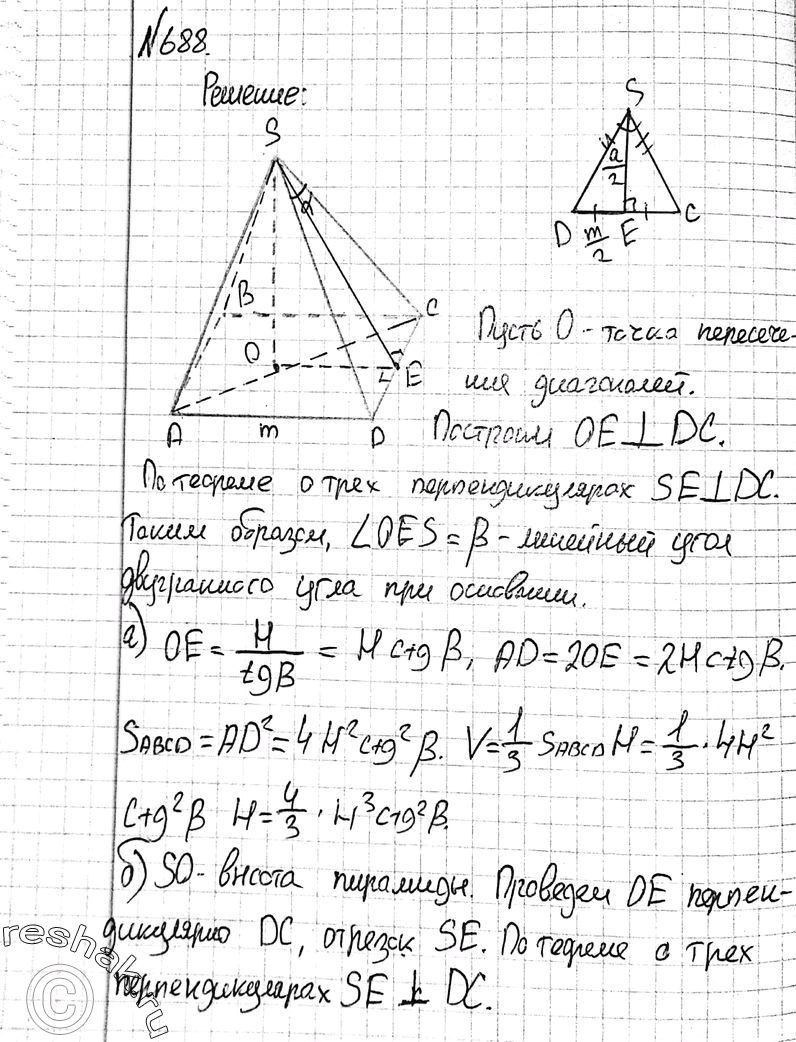 №688.
Решение:
S
α
B
C
O
E
A
m
D
S
a/2
D
m/2
E
C
Пусть O - точка пересече-
ния диагоналей.
Построим OE⊥DC.
По теореме о трех перпендикулярах SE⊥DC.
Таким образом, ∠OES = β - линейный угол
двугранного угла при основании.
а) OE = H/tgβ = H ctg β, AD = 2OE = 2H ctg β.
SABCD = AD² = 4H² ctg² β. V = 1/3 SABCD H = 1/3 · 4H²
ctg² β H = 4/3 · H³ ctg² β.
б) SO - высота пирамиды. Проведем OE перпен-
дикулярно DC, отрезок SE. По теореме о трех
перпендикулярах SE ⊥ DC.
reshak.ru
©